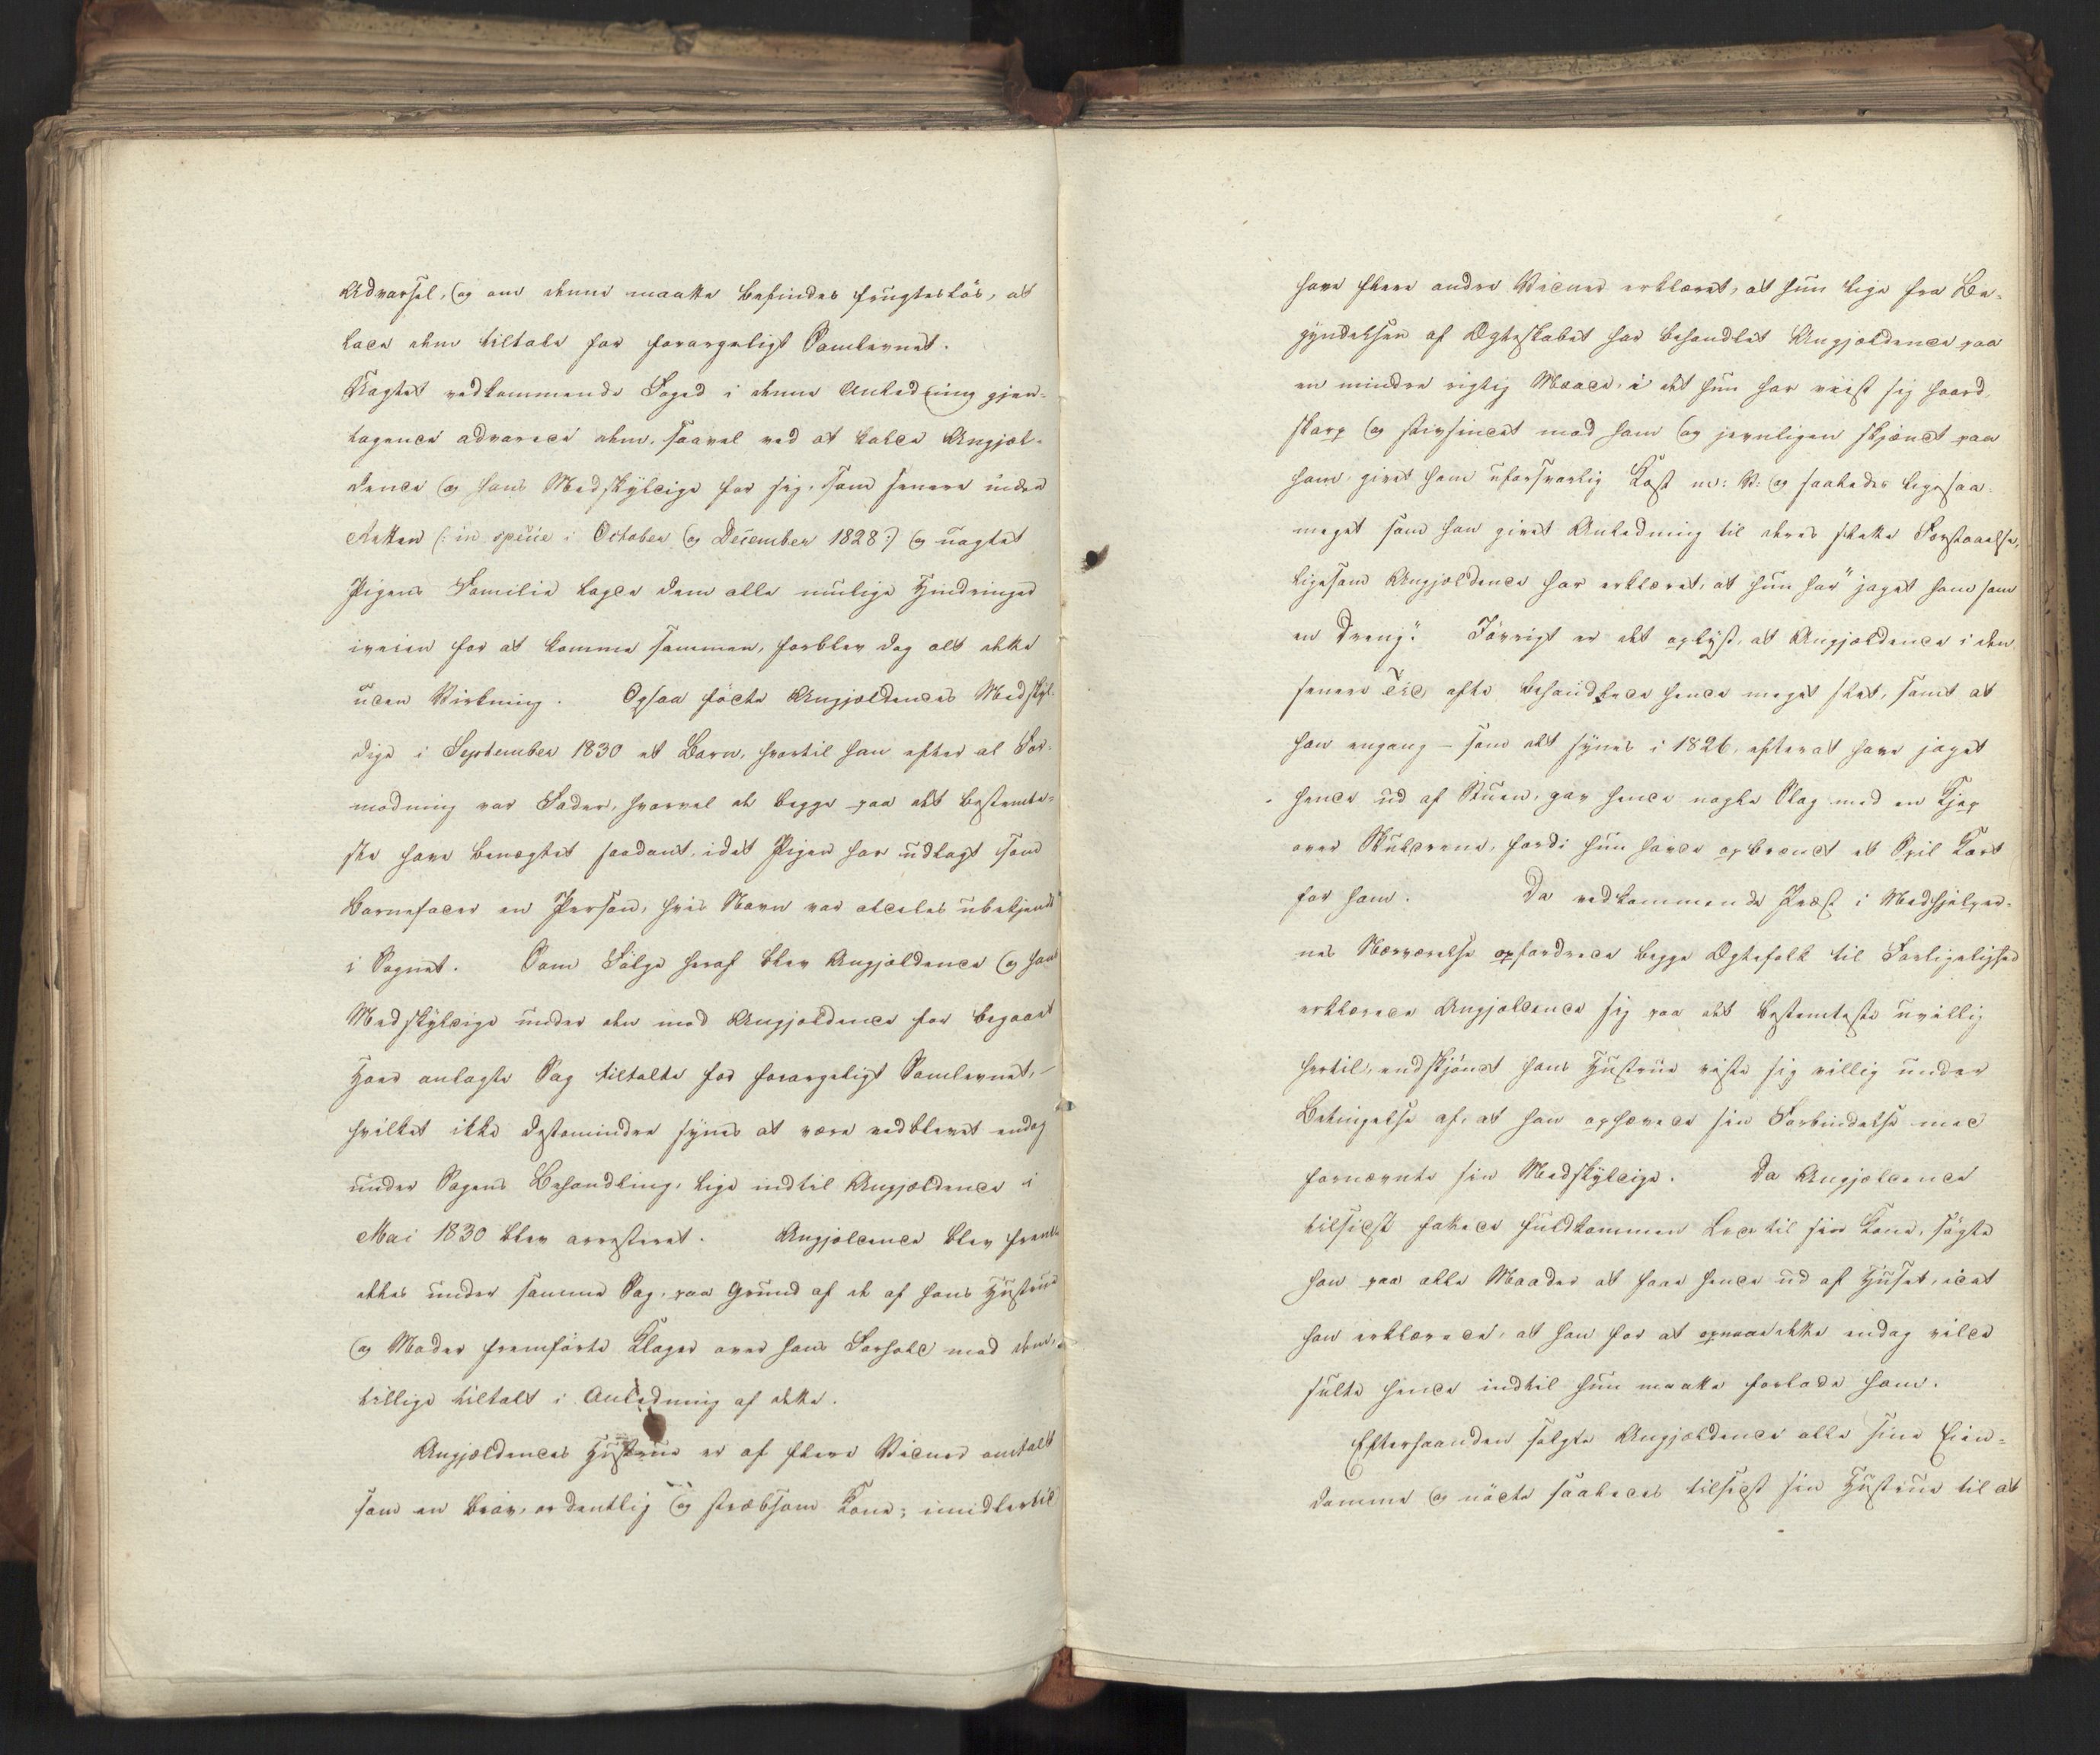 Advarsel, og om denne maatte befindes frugtesløs, at
lade dem tiltale for forargeligt Samlevnet.
Uagtet vedkommende Foged i denne Anledning gjen-
tagende advarede dem, saavel ved at kalde Angjæl-
dende og hans Medskyldige for sig, som senere inden
Retten (: in specie i October og December 1828 :) og uagtet
Pigens Familie lagde dem alle mulige Hindringer
iveien for at komme sammen, forblev dog alt dette
uden Virkning. Ogsaa fødte Angjældendes Medskyl-
dige i September 1830 et Barn, hvortil han efter al For-
modning var Fader, hvorvel de begge paa det bestemte-
ste have benægtet saadant, idet Pigen har udlagt som
Barnefader en Person, hvis Navn var aldeles ubekjendt
i Sognet. Som Følge heraf blev Angjældende og hans
Medskyldige under den mod Angjældende for begaaet
Hoer anlagte Sag tiltalte for forargeligt Samlevnet, –
hvilket ikke destomindre synes at være vedblevet endog
under Sagens Behandling, lige indtil Angjældende i
Mai 1830 blev arresteret. Angjældende blev
under samme Sag, paa Grund af de af hans Hustrue
og Moder fremførte Klager over hans Forhold mod dem,
tillige tiltalt i Anledning af dette.
Angjældendes Hustrue er af flere Vidner omtalt
som en brav, ordentlig og stræbsom Kone; imidlertid
have flere andre Vidner erklæret, at hun lige fra Be-
gyndelsen af Ægteskabet har behandlet Angjældende paa
en mindre rigtig Maade, i det hun har viist sig haard,
skarp og stivsindet mod ham og jevnligen skjændt paa
ham, givet ham uforsvarlig Kost m: V: og saaledes ligesaa
meget som han givet Anledning til deres slette Forstaaelse,
ligesom Angjældende har erklæret, at hun har "jaget ham som
en Dreng". Iøvrigt er det oplyst, at Angjældende i den
senere Tid ofte behandlede hende meget slet, samt at
han engang – som det synes i 1826, efterat have jaget
hende ud af Stuen, gav hende nogle Slag med en Kjep
over Skuldrene, fordi hun havde opbrændt et Spil Kort
for ham. Da vedkommende Præst i Medhjelper-
nes Nærværelse opfordrede begge Ægtefolk til Forligelighed
erklærede Angjældende sig paa det bestemteste uvillig
hertil, endskjøndt hans Hustrue viste sig villig under
Betingelse af, at han ophævede sin Forbindelse med
fornævnte sin Medskyldige. Da Angjældende
tilsidst fattede fuldkommen Lede til sin Kone, søgte
han paa alle Maader at faae hende ud af Huset, idet
han erklærede, at han for at opnaae dette endog vilde
sulte hende indtil hun maatte forlade ham.
Efterhaanden solgte Angjældende alle sine Eien-
domme og nødte saaledes tilsidst sin Hustrue til at